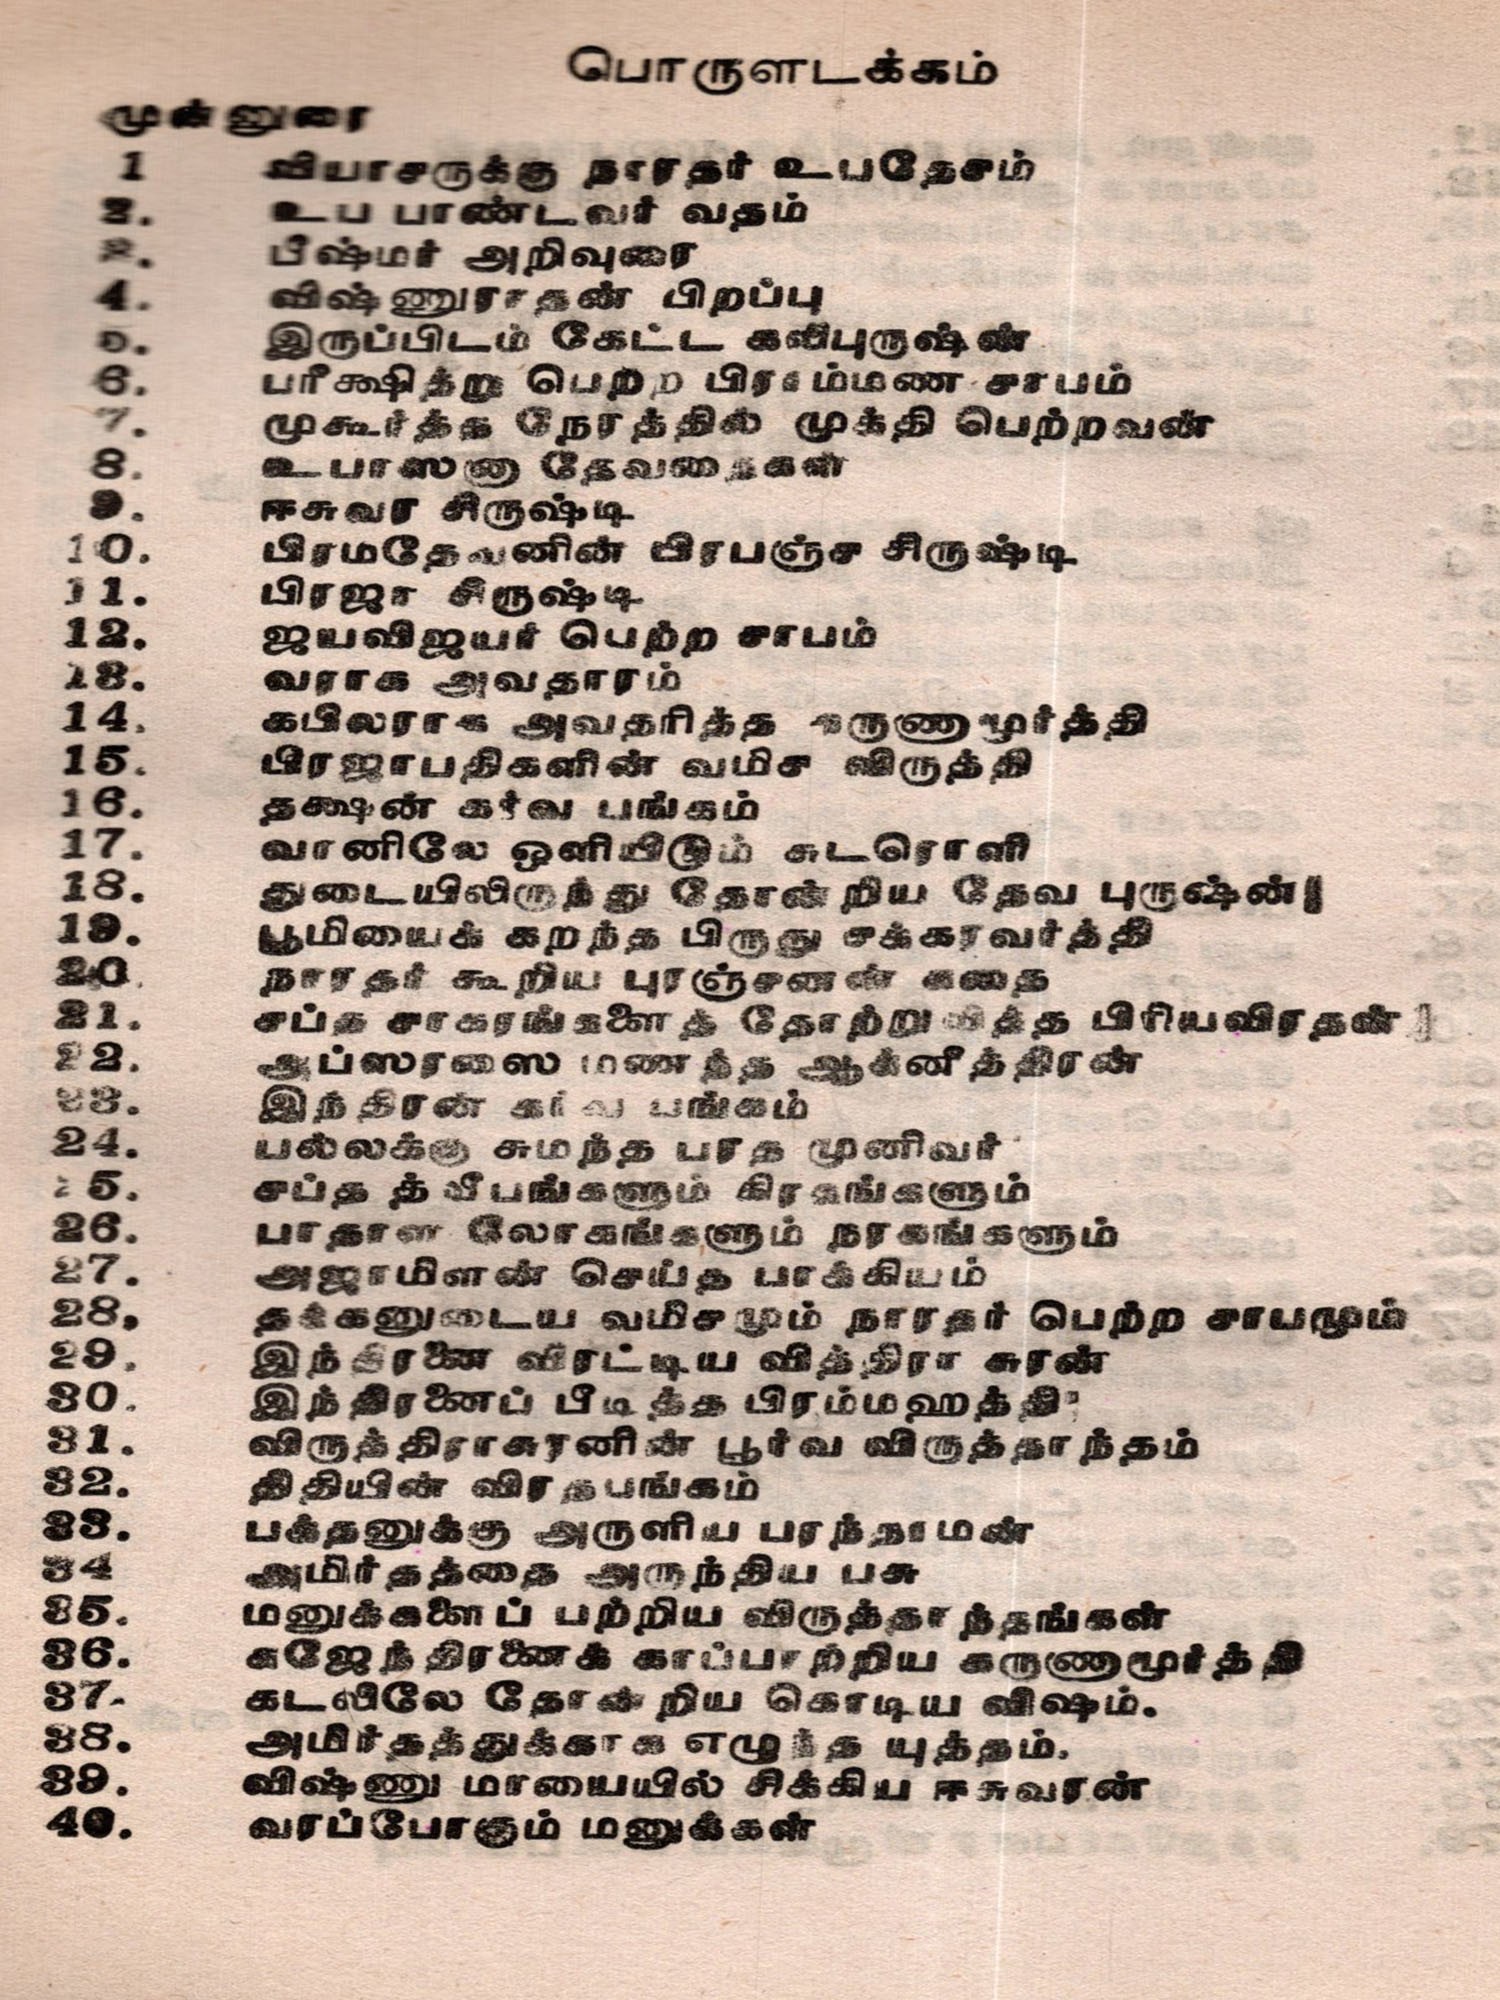 பொருளடக்கம்
முன்னுரை
1 வியாசருக்கு நாரதர் உபதேசம்
2. உப பாண்டவர் வதம்
3. பீஷ்மர் அறிவுரை
4. விஷ்ணுராதன் பிறப்பு
5. இருப்பிடம் கேட்ட கலிபுருஷன்
6. பரீக்ஷித்து பெற்ற பிராம்மண சாபம்
7. முகூர்த்த நேரத்தில் முக்தி பெற்றவன்
8. உபாஸனா தேவதைகள்
9. ஈசுவர சிருஷ்டி
10. பிரமதேவனின் பிரபஞ்ச சிருஷ்டி
11. பிரஜா சிருஷ்டி
12. ஜயவிஜயர் பெற்ற சாபம்
13. வராக அவதாரம்
14. கபிலராக அவதரித்த கருணாமூர்த்தி
15. பிரஜாபதிகளின் வமிச விருத்தி
16. தக்ஷன் கர்வ பங்கம்
17. வானிலே ஒளியிடும் சுடரொளி
18. துடையிலிருந்து தோன்றிய தேவ புருஷன்
19. பூமியைக் கறந்த பிருது சக்கரவர்த்தி
20. நாரதர் கூறிய புரஞ்சனன் கதை
21. சப்த சாகரங்களைத் தோற்றுவித்த பிரியவிரதன்
22. அப்ஸரஸை மணந்த ஆக்னீத்திரன்
23. இந்திரன் கர்வ பங்கம்
24. பல்லக்கு சுமந்த பரத முனிவர்
25. சப்த த்வீபங்களும் கிரகங்களும்
26. பாதாள லோகங்களும் நரகங்களும்
27. அஜாமிளன் செய்த பாக்கியம்
28, தக்கனுடைய வமிசமும் நாரதர் பெற்ற சாபமும்
29. இந்திரனை விரட்டிய வித்திரா சுரன்
30. இந்திரனைப் பீடித்த பிரம்மஹத்தி
31. விருத்திராசுரனின் பூர்வ விருத்தாந்தம்
32. திதியின் விரதபங்கம்
33. பக்தனுக்கு அருளிய பரந்தாமன்
34 அமிர்தத்தை அருந்திய பசு
35. மனுக்களைப் பற்றிய விருத்தாந்தங்கள்
36. கஜேந்திரனைக் காப்பாற்றிய கருணாமூர்த்தி
37. கடலிலே தோன்றிய கொடிய விஷம்.
38. அமிர்தத்துக்காக எழுந்த யுத்தம்.
39. விஷ்ணு மாயையில் சிக்கிய ஈசுவரன்
40. வரப்போகும் மனுக்கள்